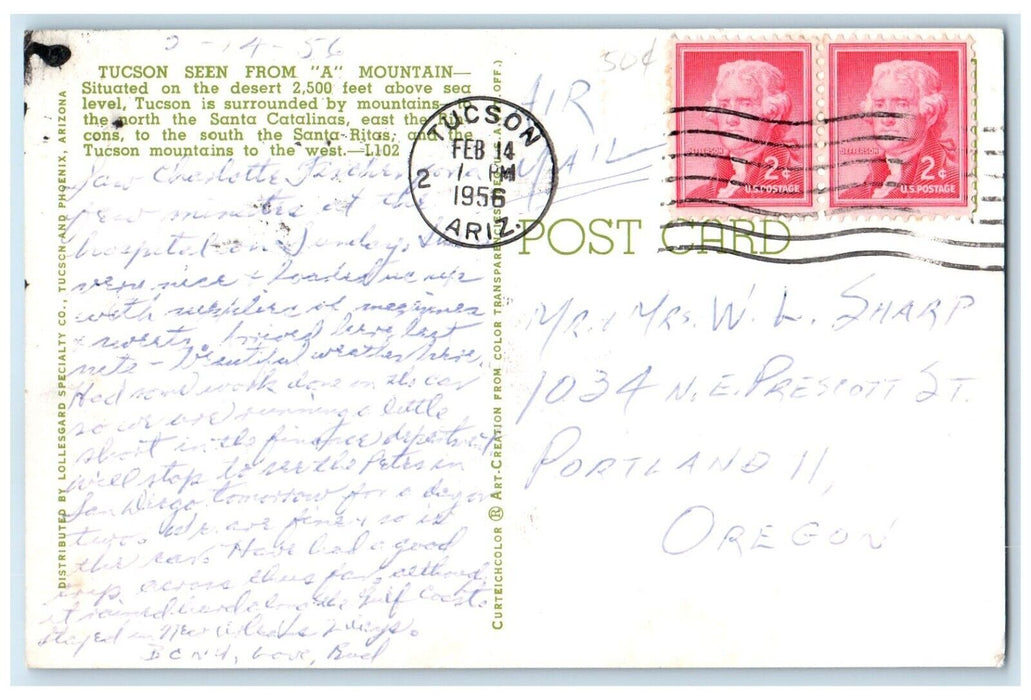 2-14-56
TUCSON SEEN FROM "A" MOUNTAIN—
Situated on the desert 2,500 feet above sea
level, Tucson is surrounded by mountains—
the north the Santa Catalinas, east the
cons, to the south the Santa Ritas, and the
Tucson mountains to the west.—L102
Saw Charlotte for a
few minutes at the
hospital on Sunday. She
very nice & loaded me up
with supplies of magazines
& sweets. Arrived here last
nite - beautiful weather here.
Had some work done on the car
so we are running a little
short in the finance department
will stop to see the Petes in
San Diego tomorrow for a day or
two. We are fine & so is
the car. Have had a good
trip across thus far, although
it rained hard along the Gulf Coast.
Stayed in New Orleans 2 days.
Love,
DISTRIBUTED BY LOLLESGARD SPECIALTY CO., TUCSON AND PHOENIX, ARIZONA
CURTEICHCOLOR ® ART-CREATION FROM COLOR TRANSPARE OFF.)
50¢
AIR
MAIL
TUCSON
FEB 14
1 PM
2
1956
ARIZ.
JEFFERSON
2¢
U.S. POSTAGE
JEFFERSON
2¢
U.S. POSTAGE
POST CARD
MR. & MRS. W. L. SHARP
1034 N.E. PRESCOTT ST.
PORTLAND 11,
OREGON